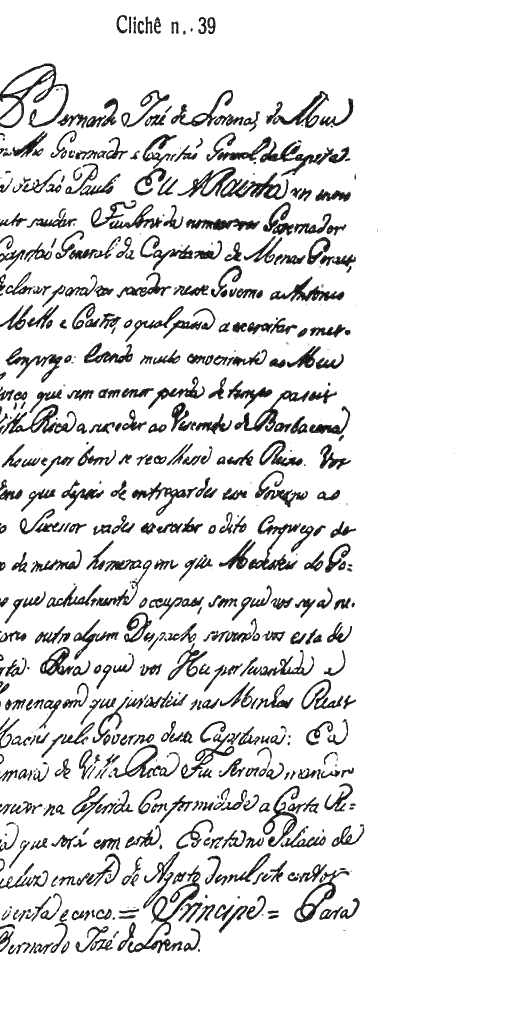 Clichê n. 39
Bernardo Jozé de Lorena, do Meu
Governador e Capitaõ General da Capita-
de Saõ Paulo EU A RAINHA vos envio
muito saudar. Fui servida nomearvos Governador
Capitaõ General da Capitania de Minas Geraes,
declarar para vos suceder nesse Governo a Antonio
Mello e Castro, o qual passa a exercitar o met-
Emprego: E sendo muito conveniente ao Meu
viço que sem a menor perda de tempo passeis
Villa Rica a suceder ao Visconde de Barbacena,
houve por bem se recolhesse a este Reino. Vos
deno que depois de entregardes esse Governo ao
o Sucessor vades exercitar o dito Emprego de-
o da mesma homenagem que Me désteis do Go-
o que actualmente occupaes, sem que vos seja ne-
sario outro algum Despacho, servindo vos esta de
rta. Para o que vos Hei por levantada a
Homenagem que jurasteis nas Minhas Reaes
Maõs pelo Governo dessa Capitania: E á
amara de Villa Rica Fui servida mandar
ever na referida Conformidade a Carta Re-
a que será com esta. Escrita no Palacio de
ueluz em sete de Agosto de mil sete centos
oventa e cinco. = Principe = Para
Bernardo Jozé de Lorena.